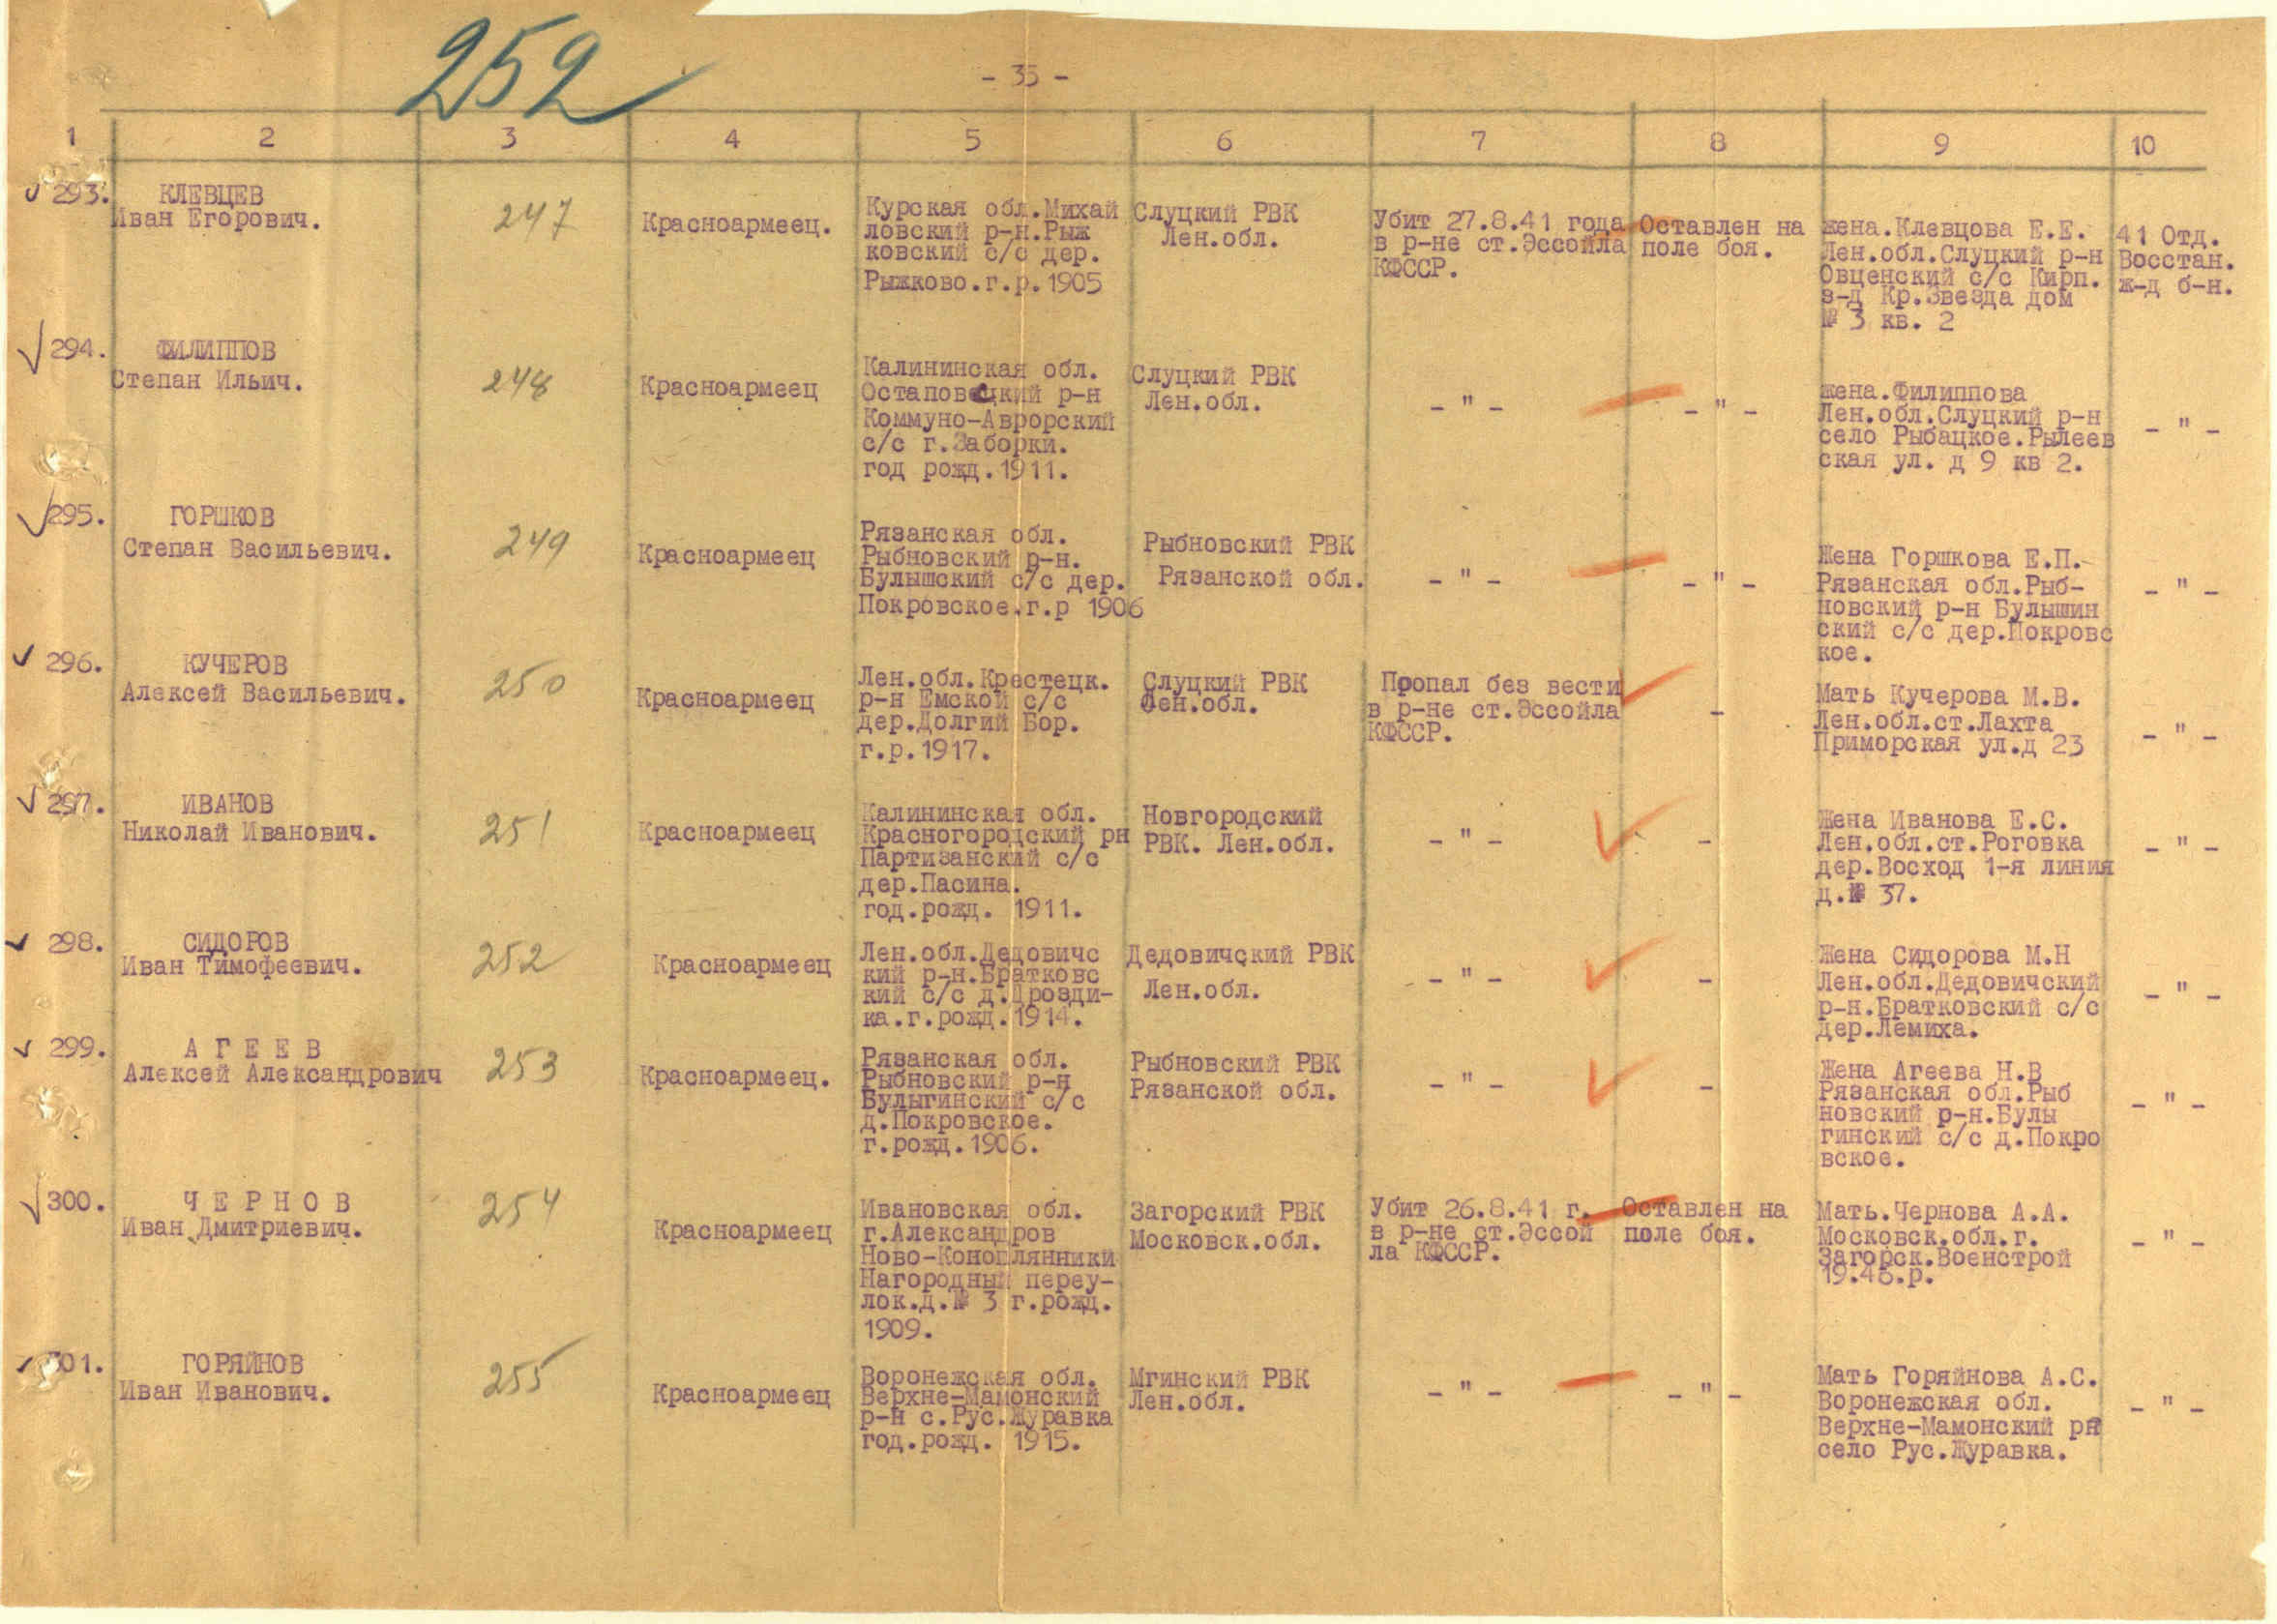 252
- 35 -
1 2 3 4 5 6 7 8 9 10
293.
КЛЕВЦЕВ
Иван Егорович.
247
Красноармеец.
Курская обл.Михай
ловский р-н.Рыж
ковский с/с дер.
Рыжково.г.р.1905
Слуцкий РВК
Лен.обл.
Убит 27.8.41 года
в р-не ст.Эссойла
КФССР.
Оставлен на
поле боя.
жена.Клевцова Е.Е.
Лен.обл.Слуцкий р-н
Овценский с/с Кирп.
з-д Кр.Звезда дом
№ 3 кв. 2
41 Отд.
Восстан.
ж-д б-н.
294.
ФИЛИППОВ
Степан Ильич.
248
Красноармеец
Калининская обл.
Остаповецкий р-н
Коммуно-Аврорский
с/с г.Заборки.
год рожд.1911.
Слуцкий РВК
Лен.обл.
- " -
- " -
жена.Филиппова
Лен.обл.Слуцкий р-н
село Рыбацкое.Рылеев
ская ул. д 9 кв 2.
- " -
295.
ГОРШКОВ
Степан Васильевич.
249
Красноармеец
Рязанская обл.
Рыбновский р-н.
Булышский с/с дер.
Покровское.г.р 1906
Рыбновский РВК
Рязанской обл.
- " -
- " -
Жена Горшкова Е.П.
Рязанская обл.Рыб-
новский р-н Булышин
ский с/с дер.Покровс
кое.
- " -
296.
КУЧЕРОВ
Алексей Васильевич.
250
Красноармеец
Лен.обл.Крестецк.
р-н Емской с/с
дер.Долгий Бор.
г.р.1917.
Слуцкий РВК
Лен.обл.
Пропал без вести
в р-не ст.Эссойла
КФССР.
-
Мать Кучерова М.В.
Лен.обл.ст.Лахта
Приморская ул.д 23
- " -
297.
ИВАНОВ
Николай Иванович.
251
Красноармеец
Калининская обл.
Красногородский рн
Партизанский с/с
дер.Пасина.
год.рожд. 1911.
Новгородский
РВК. Лен.обл.
- " -
-
Жена Иванова Е.С.
Лен.обл.ст.Роговка
дер.Восход 1-я линия
д.№ 37.
- " -
298.
СИДОРОВ
Иван Тимофеевич.
252
Красноармеец
Лен.обл.Дедовичс
кий р-н.Братковс
кий с/с д.Дрозди-
ка.г.рожд.1914.
Дедовичский РВК
Лен.обл.
- " -
-
Жена Сидорова М.Н
Лен.обл.Дедовичский
р-н.Братковский с/с
дер.Лемиха.
- " -
299.
А Г Е Е В
Алексей Александрович
253
Красноармеец.
Рязанская обл.
Рыбновский р-н
Булыгинский с/с
д.Покровское.
г.рожд.1906.
Рыбновский РВК
Рязанской обл.
- " -
-
Жена Агеева Н.В
Рязанская обл.Рыб
новский р-н.Булы
гинский с/с д.Покро
вское.
- " -
300.
Ч Е Р Н О В
Иван Дмитриевич.
254
Красноармеец
Ивановская обл.
г.Александров
Ново-Коноплянники
Нагородный переу-
лок.д.№ 3 г.рожд.
1909.
Загорский РВК
Московск.обл.
Убит 26.8.41 г.
в р-не ст.Эссой
ла КФССР.
Оставлен на
поле боя.
Мать.Чернова А.А.
Московск.обл.г.
Загорск.Военстрой
19.46.р.
- " -
301.
ГОРЯЙНОВ
Иван Иванович.
255
Красноармеец
Воронежская обл.
Верхне-Мамонский
р-н с.Рус.Журавка
год.рожд. 1915.
Мгинский РВК
Лен.обл.
- " -
- " -
Мать Горяйнова А.С.
Воронежская обл.
Верхне-Мамонский рн
село Рус.Журавка.
- " -